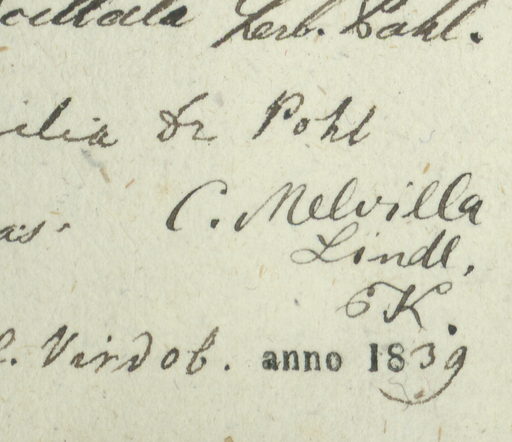 herb. Pohl.
ilia Dr Pohl
as. C. Melvilla
Lindl.
6K.
l. Vindob. anno 1839